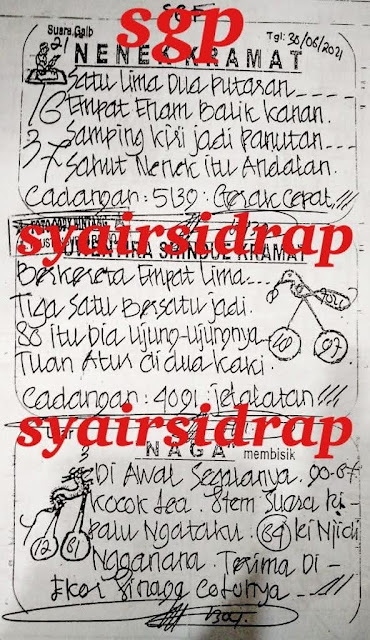 SGP
sgp
Suara Gaib
Tgl: 30/06/2021
21
NENEK KRAMAT
Satu lima dua putaran
16 Empat Enam Balik kanan.
Samping kiri jadi panutan
37 Sahut Nenek itu Andalan.
Cadangan: 5130: Gerak cepat
syairsidrap
KRAMAT
Berkereta Empat lima
Tiga Satu Bersatu jadi.
88 itu Dia ujung-ujungnya
Tuan Atus di dua kaki.
97
Cadangan: 4091: jelalatan
syairsidrap
NAGA membisik
Di Awal Segalanya. 90-67
Kocok Lea. Stem Suara ki-
palu Ngataku. 84 ki Njidi
12 61
Ngganana. Terima Di-
Ekor Binang Cotonya